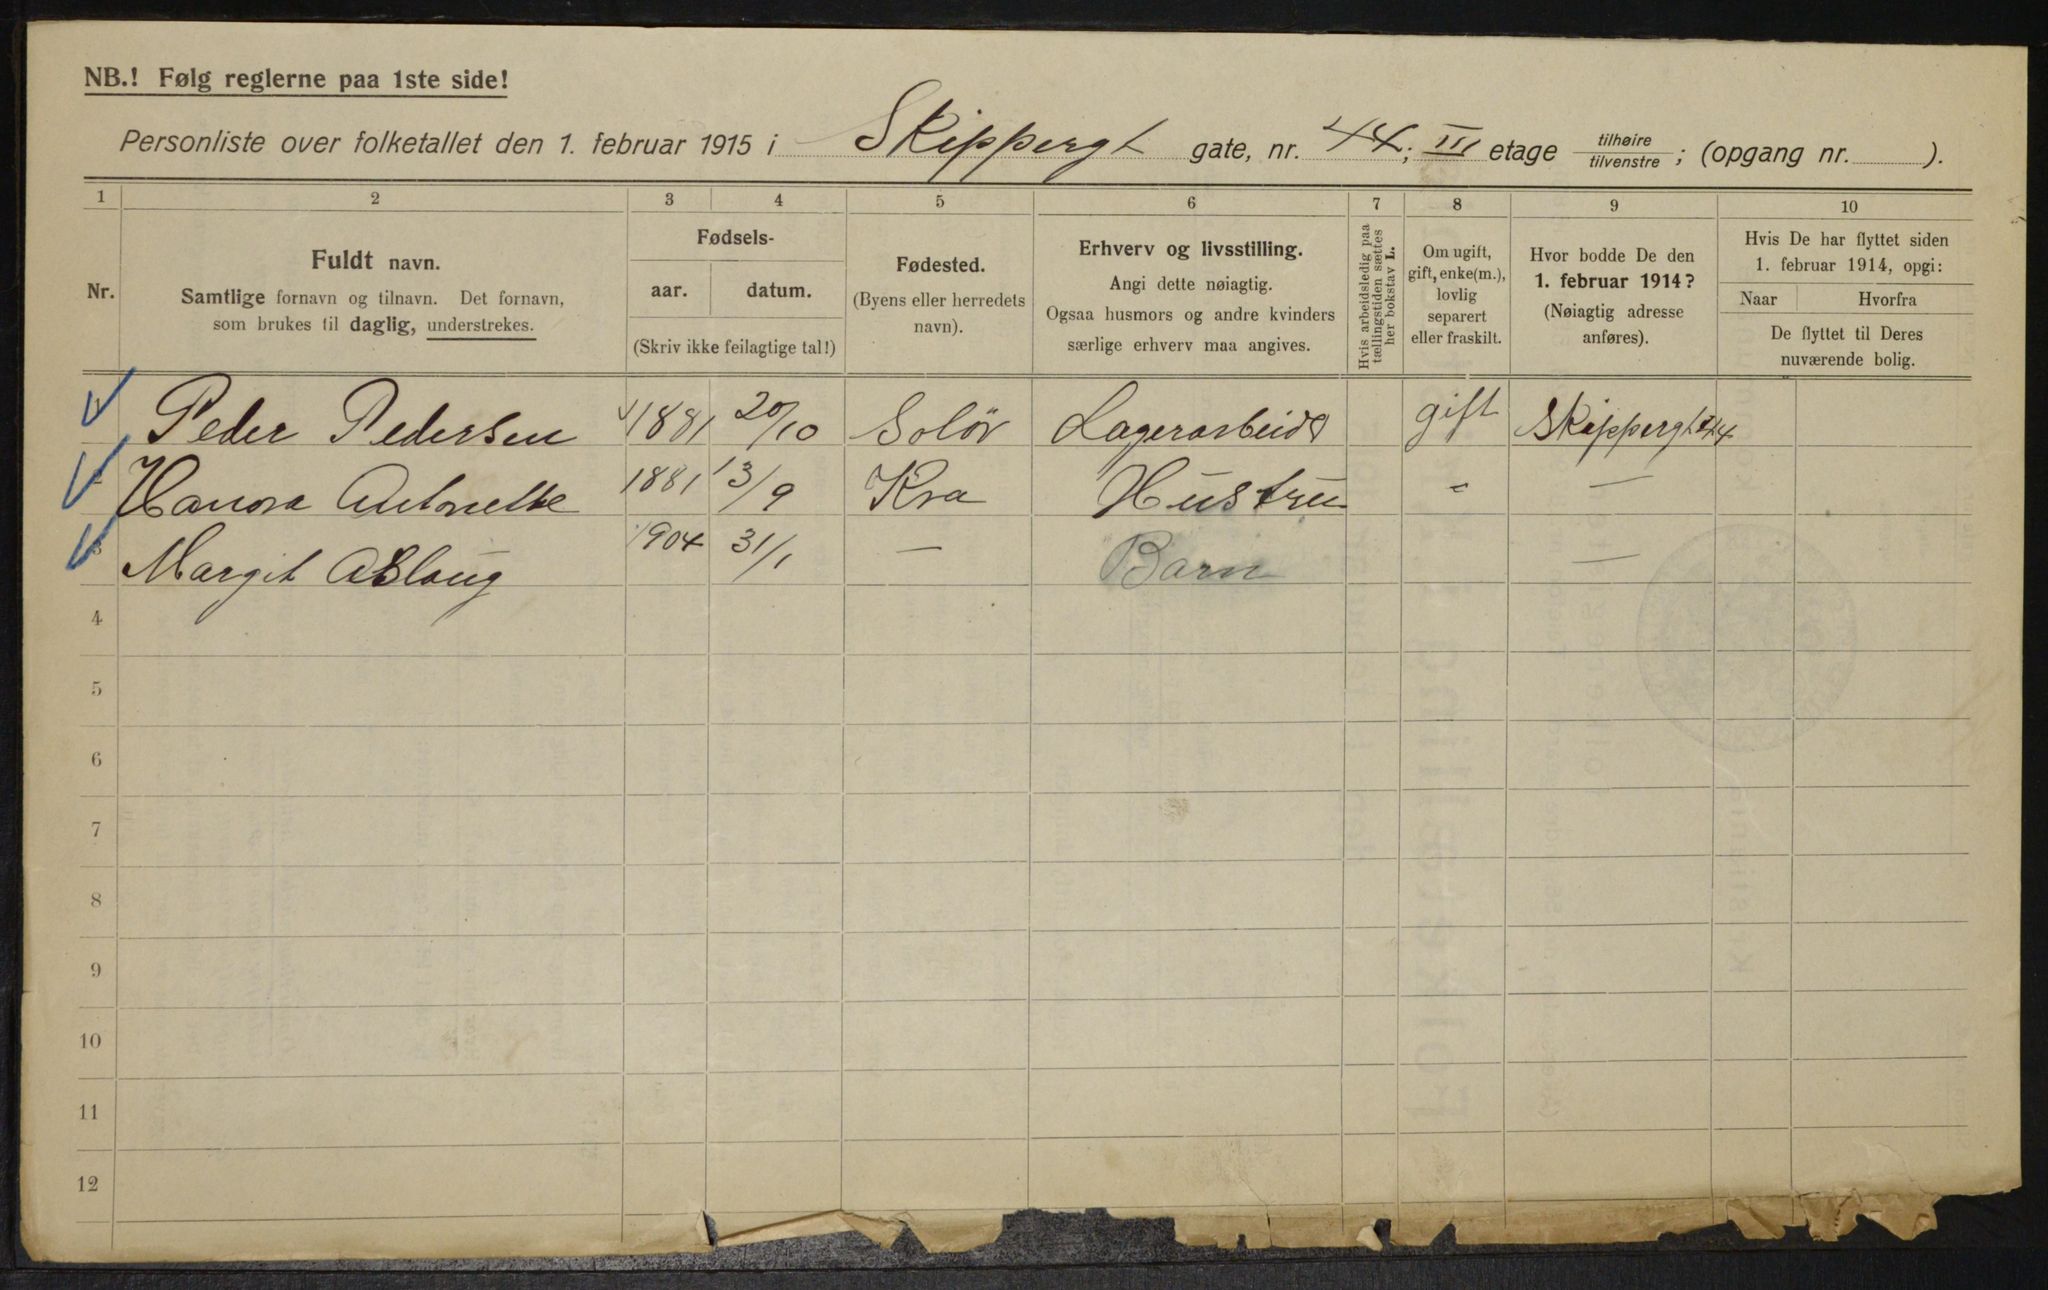 NB.! Følg reglerne paa 1ste side!
Personliste over folketallet den 1. februar 1915 i Skippergt gate, nr. 44; III etage tilhøire/tilvenstre; (opgang nr. ).
1 2 3 4 5 6 7 8 9 10
Nr.
Fuldt navn.
Samtlige fornavn og tilnavn. Det fornavn,
som brukes til daglig, understrekes.
Fødsels-
aar. datum.
(Skriv ikke feilagtige tal!)
Fødested.
(Byens eller herredets
navn).
Erhverv og livsstilling.
Angi dette nøiagtig.
Ogsaa husmors og andre kvinders
særlige erhverv maa angives.
Hvis arbeidsledig paa
tællingstiden sættes
her bokstav L.
Om ugift,
gift, enke(m.),
lovlig
separert
eller fraskilt.
Hvor bodde De den
1. februar 1914?
(Nøiagtig adresse
anføres).
Hvis De har flyttet siden
1. februar 1914, opgi:
Naar Hvorfra
De flyttet til Deres
nuværende bolig.
1 Peder Pedersen 1881 20/10 Solör Lagerarbeid gift Skippergt 44
2 Hanora Antonette 1881 13/9 Kra Hustru " —
3 Margit Aslaug 1904 31/1 — Barn —
4
5
6
7
8
9
10
11
12